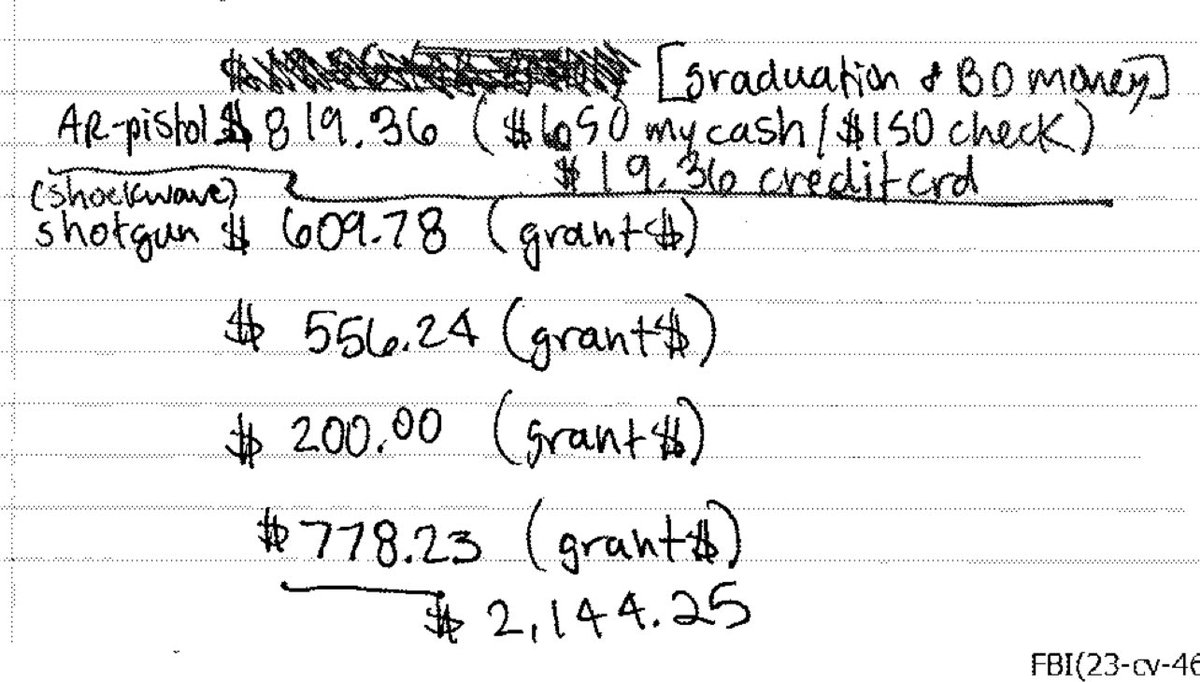 [graduation & BD money]
AR-pistol $ 819.36 ($650 my cash / $150 check)
$19.36 credit crd
(shockwave)
shotgun $ 609.78 (grant $)
$ 556.24 (grant $)
$ 200.00 (grant $)
$ 778.23 (grant $)
$ 2,144.25
FBI(23-cv-46